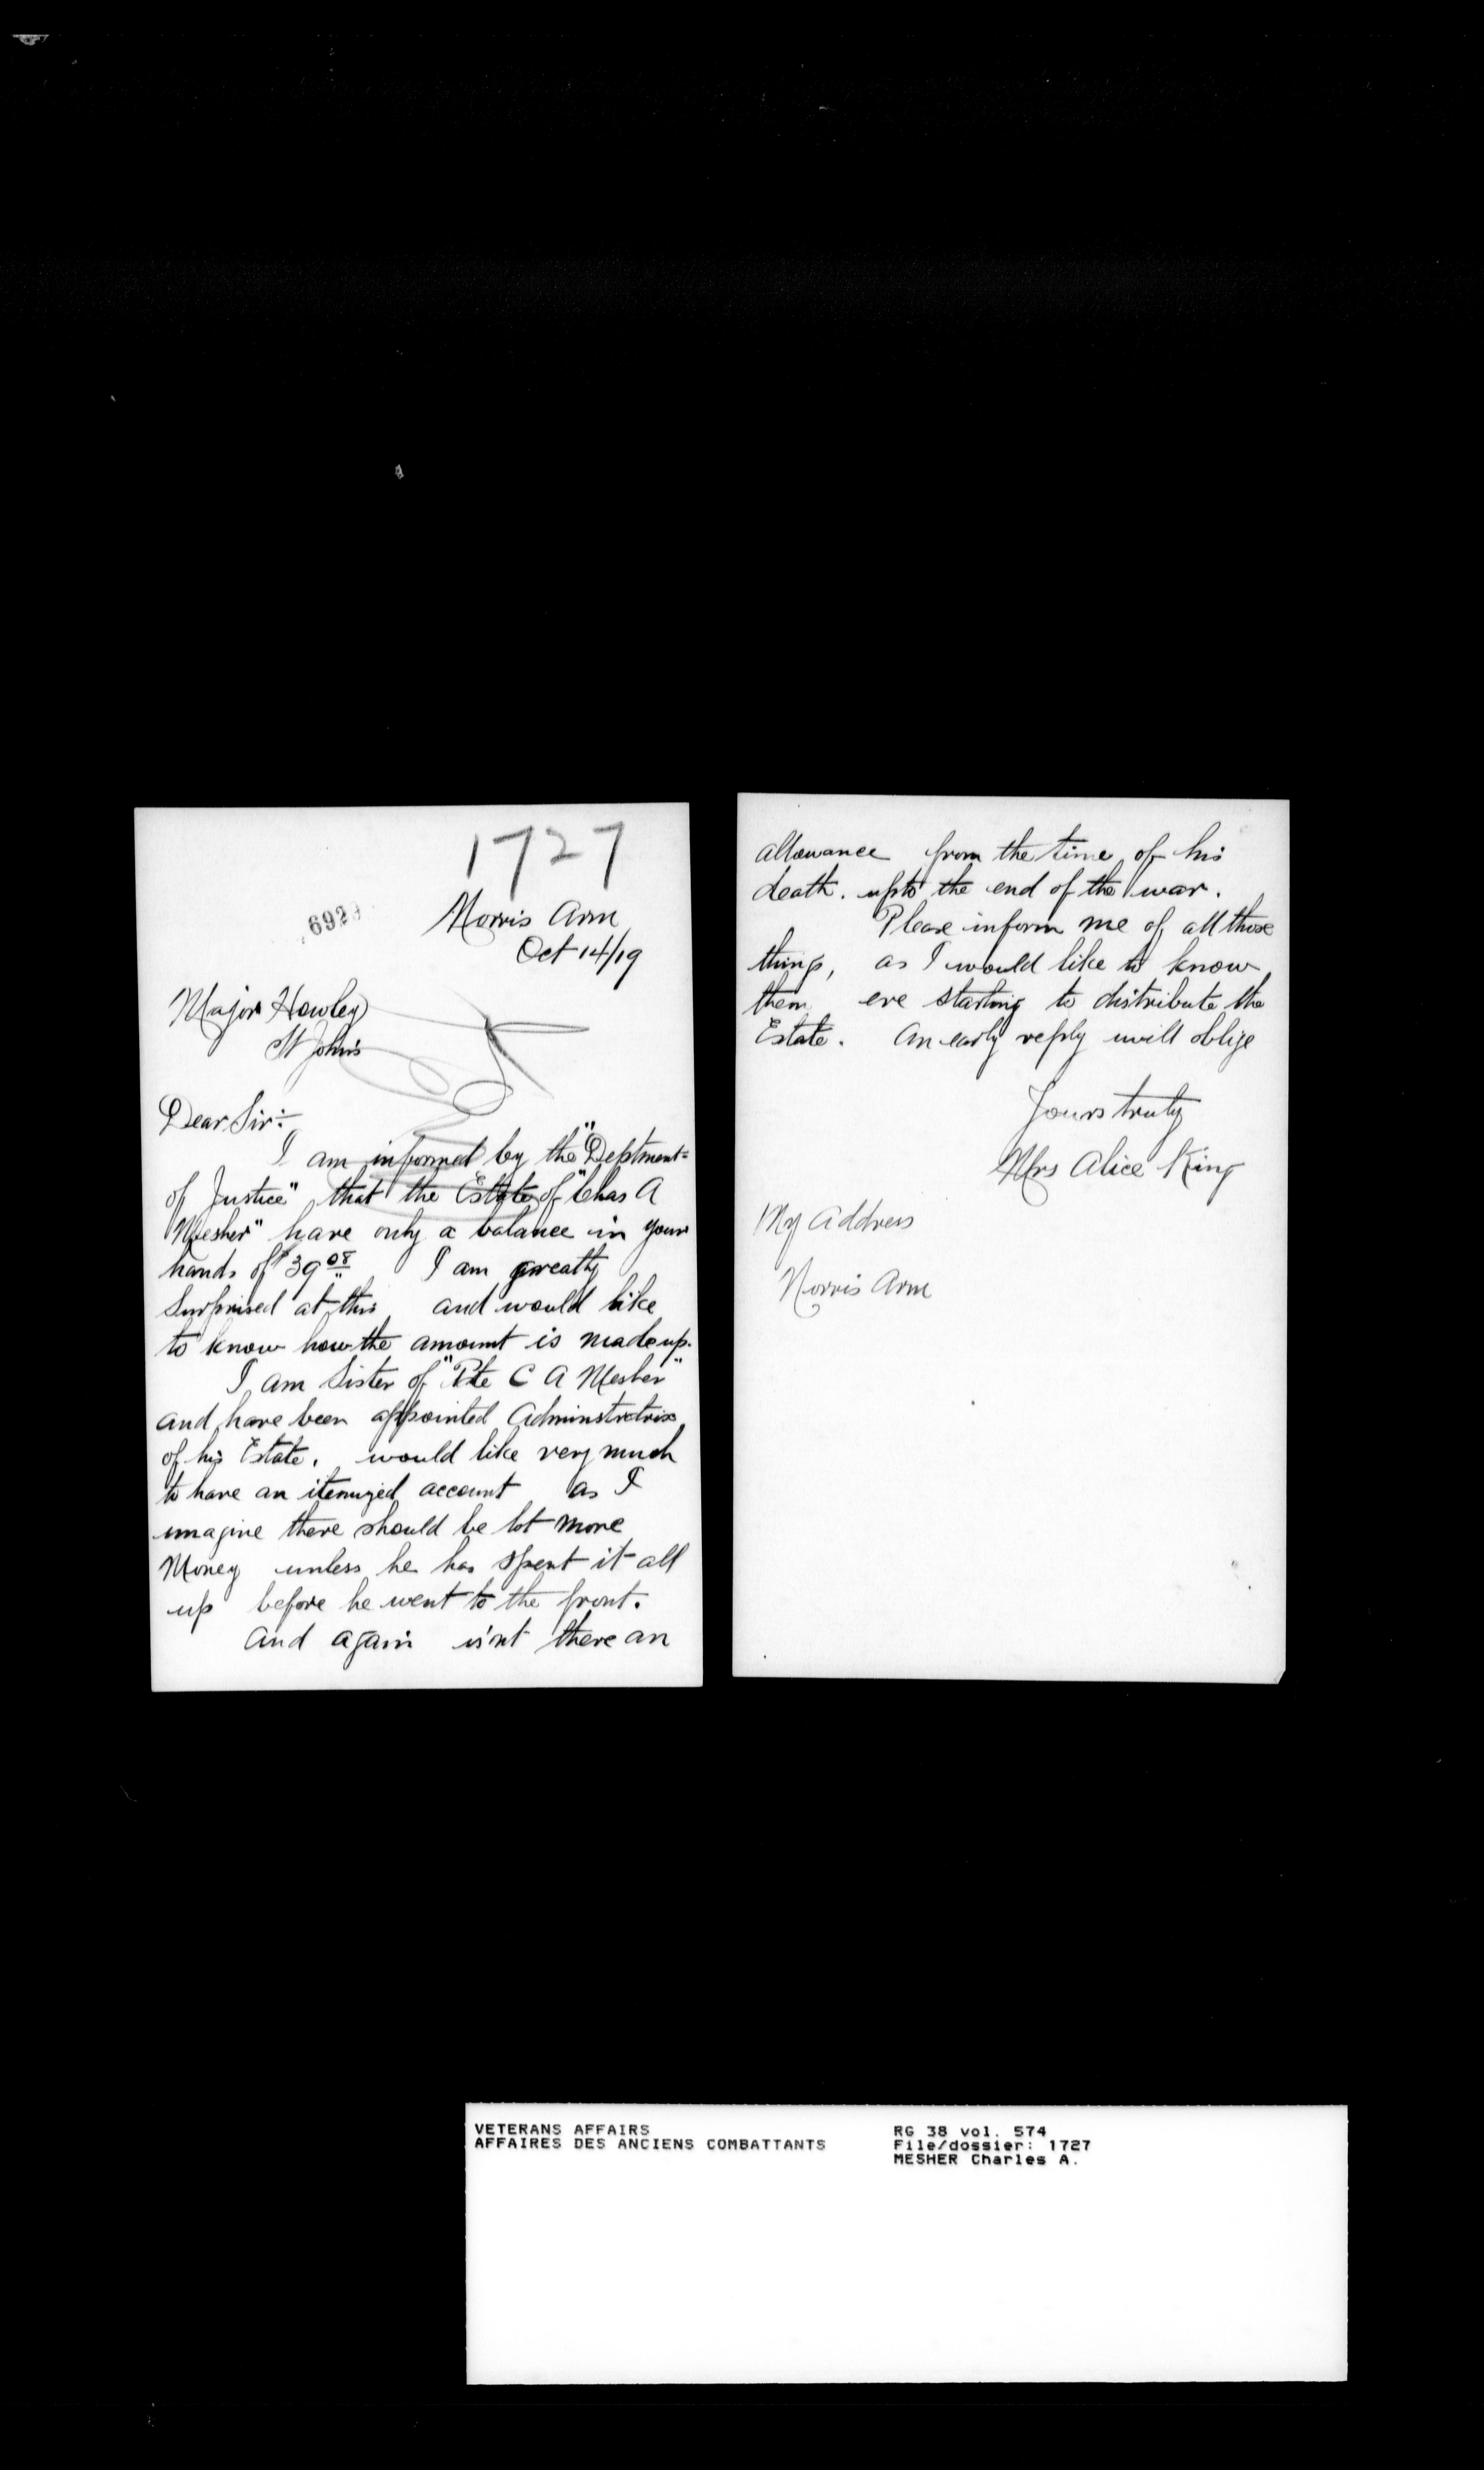 1727
Norris Arm
Oct 14/19
Major Howley
St John's
Dear Sir:-
I am informed by the "Deptment=
of Justice" that the Estate of "Chas A
Mesher" have only a balance in your
hands of $39 08 I am greatly
Surprised at this and would like
to know how the amount is made up.
I am Sister of "Pte C A Mesher"
and have been appointed Adminstratrix
of his Estate. would like very much
to have an itemized account as I
imagine there should be lot more
Money unless he has spent it all
up before he went to the front.
And again is'nt there an
allowance from the time of his
death. upto the end of the war.
Please inform me of all those
things, as I would like to know
them ere starting to distribute the
Estate. An early reply will oblige
Yours truly
Mrs Alice King
My Address
Norris Arm
VETERANS AFFAIRS
AFFAIRES DES ANCIENS COMBATTANTS
RG 38 vol. 574
File/dossier: 1727
MESHER Charles A.